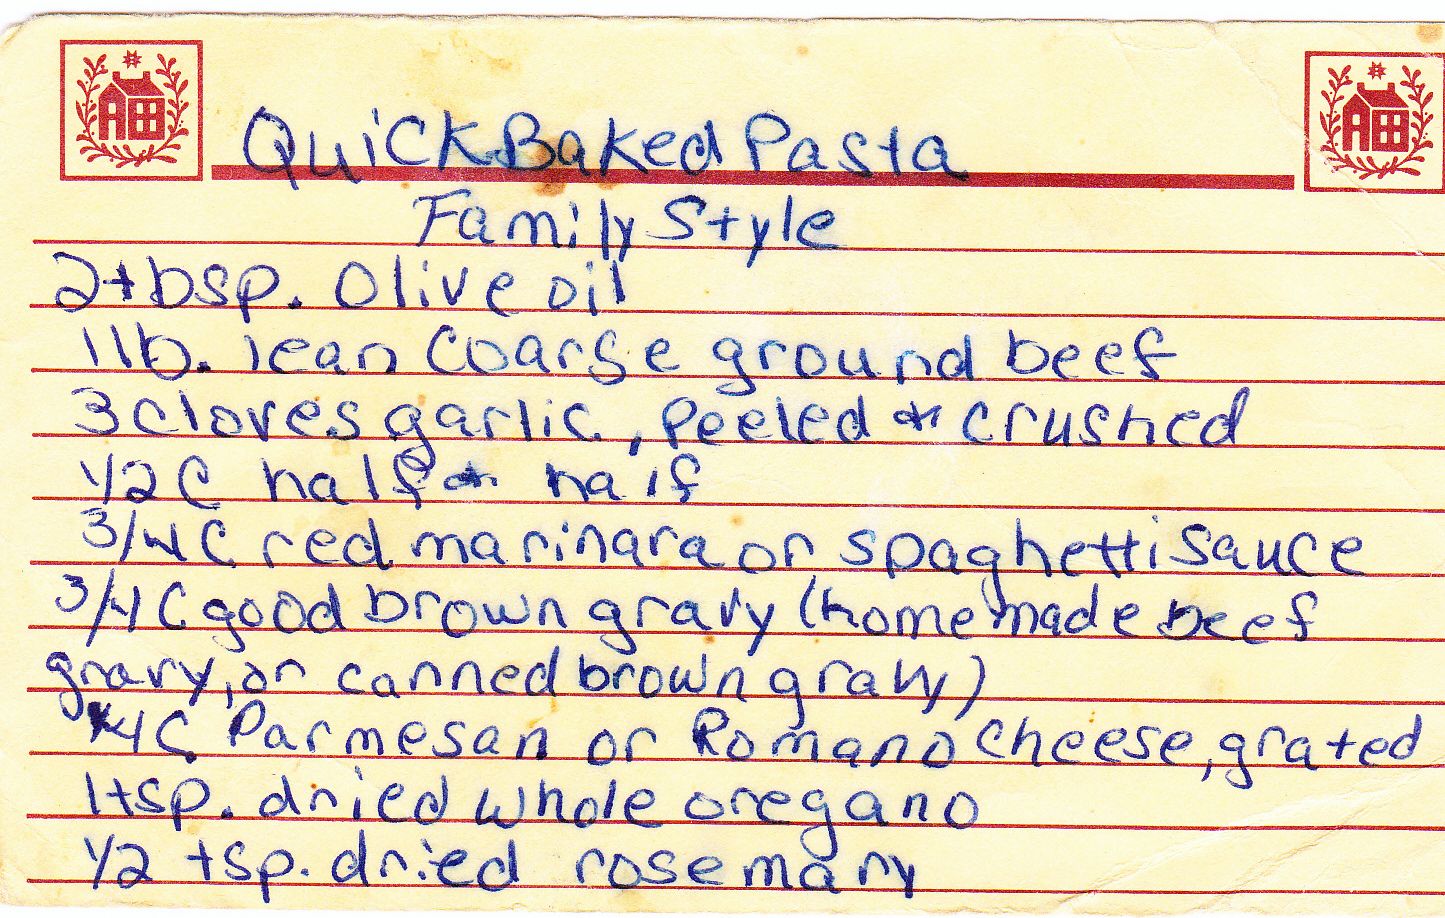 Quick Baked Pasta
Family Style
2 tbsp. Olive oil
1 lb. lean coarse ground beef
3 cloves garlic, peeled & crushed
1/2 C half & half
3/4 C red marinara or spaghetti sauce
3/4 C good brown gravy (homemade beef
gravy, or canned brown gravy)
1/4 C Parmesan or Romano cheese, grated
1 tsp. dried whole oregano
1/2 tsp. dried rosemary